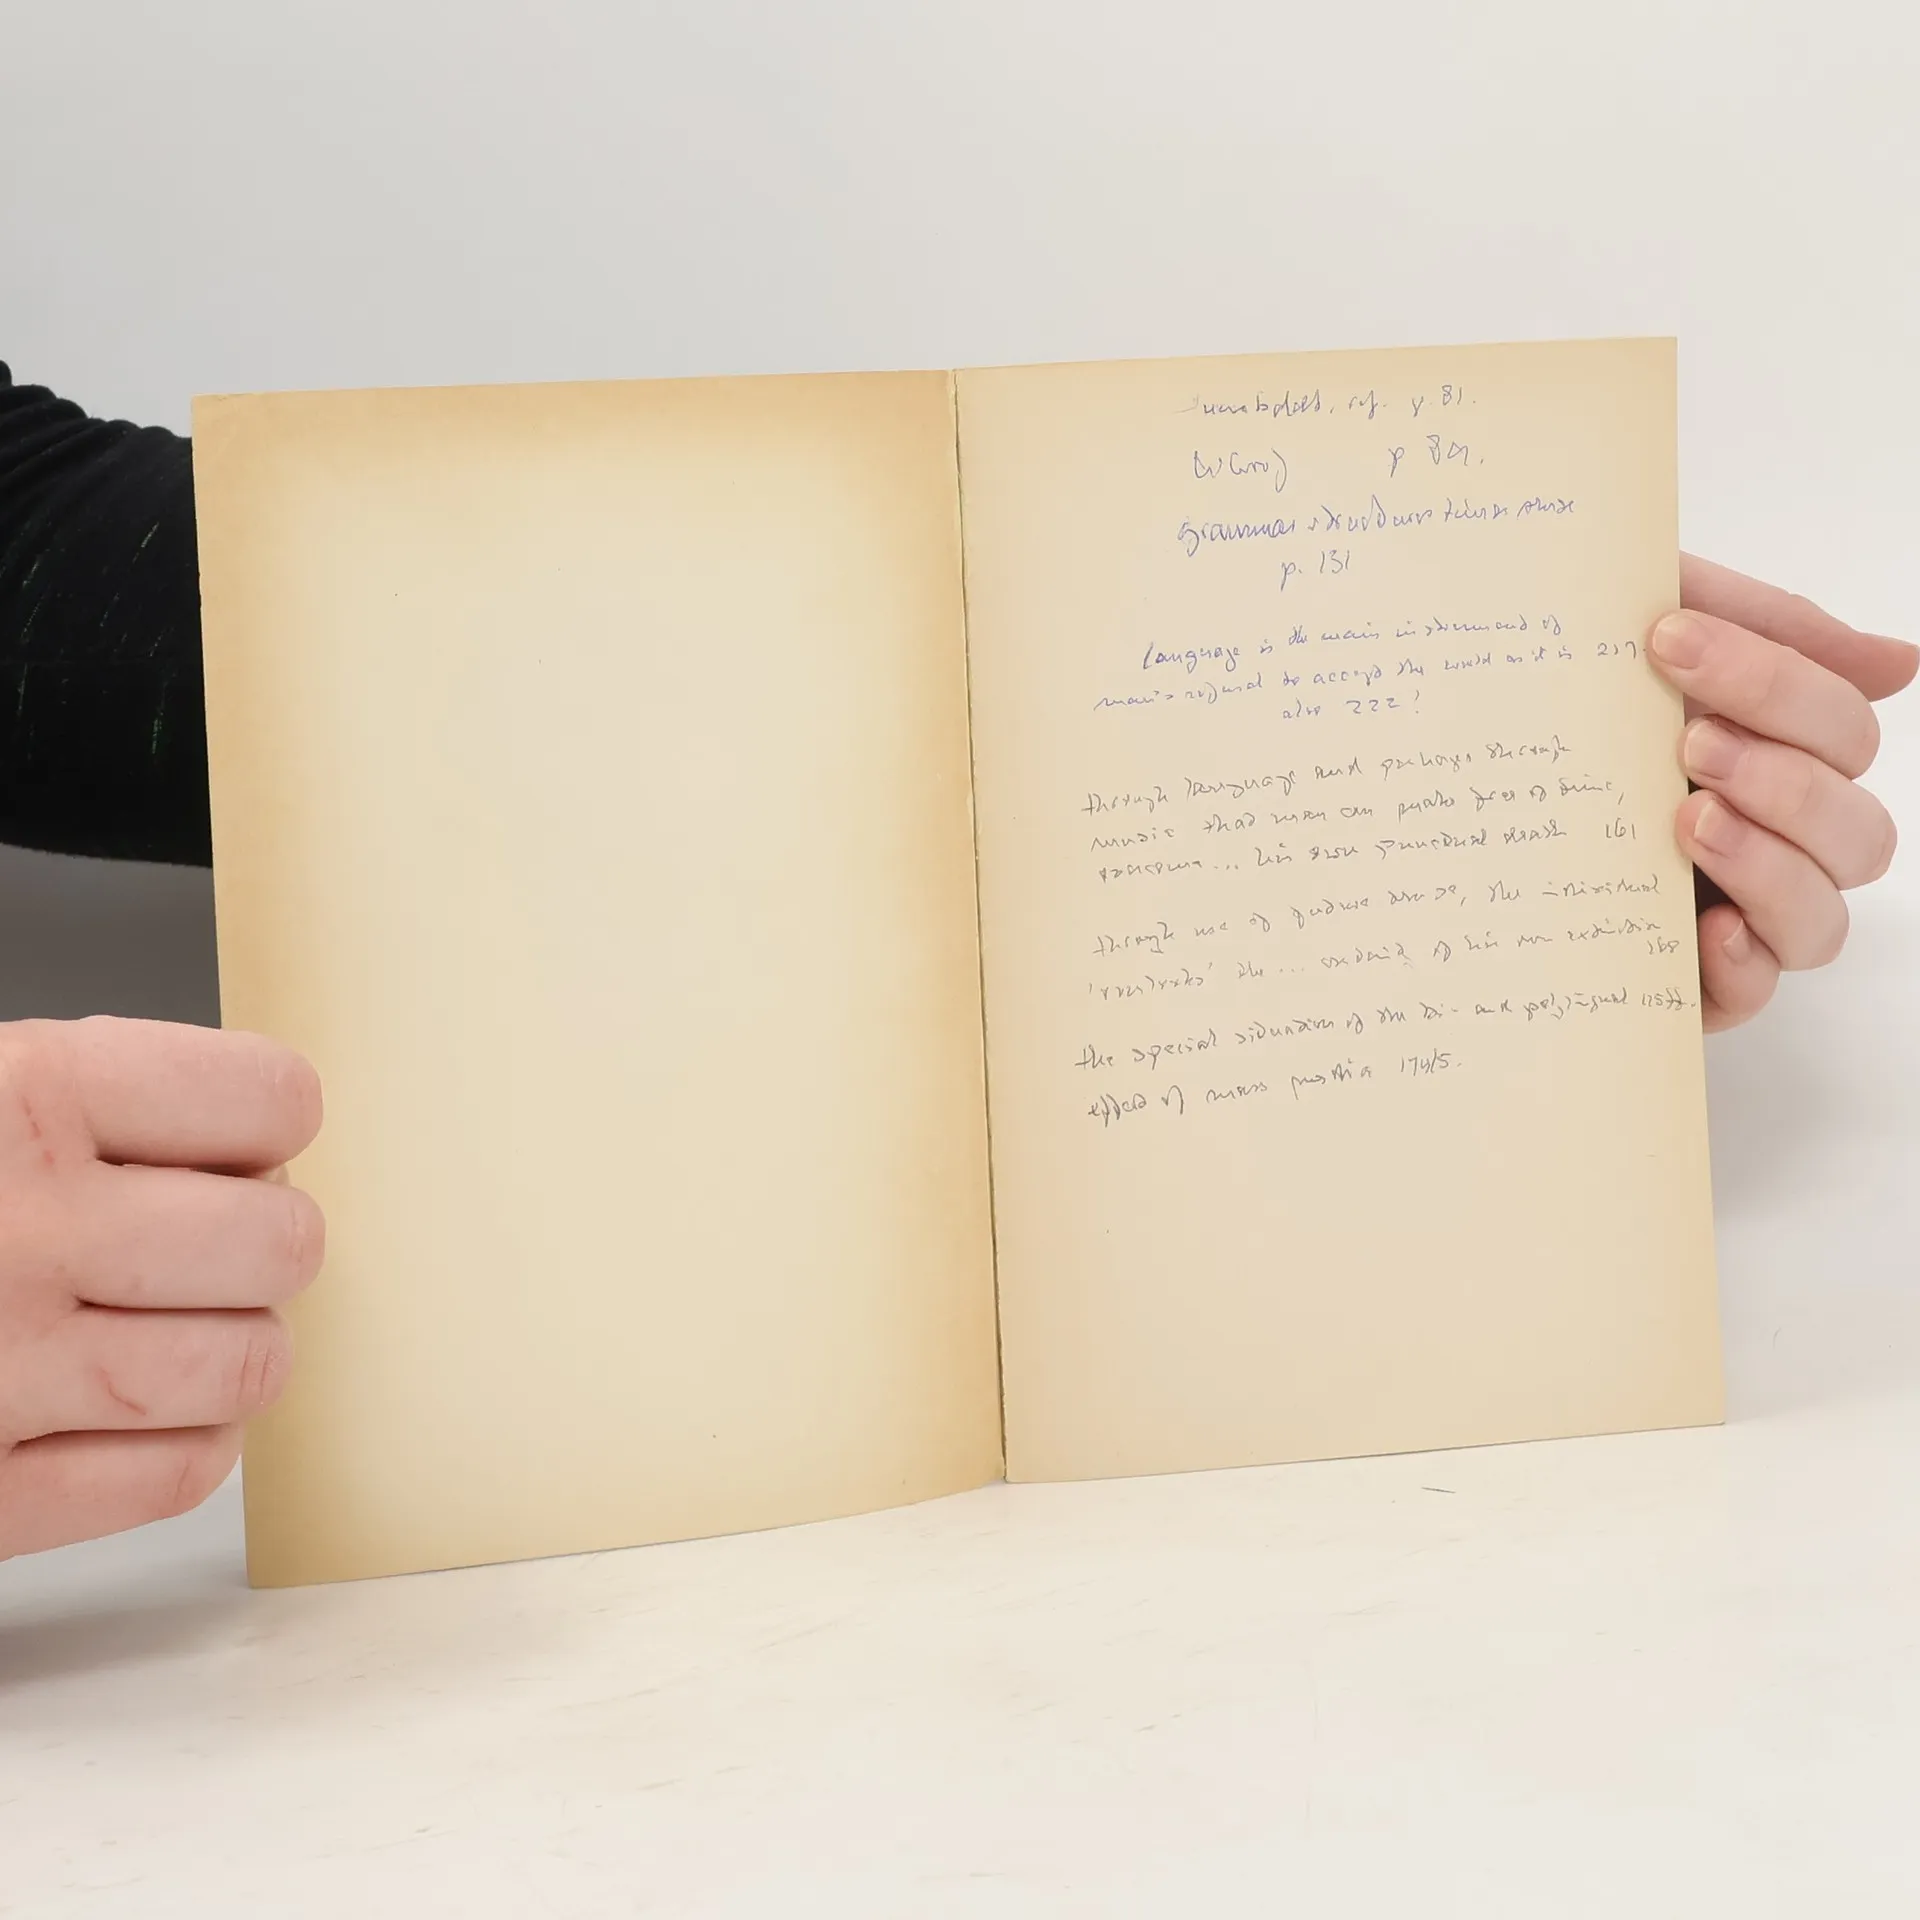 Humboldt, ref. p. 81.
Whorf p 89.
grammar structures time sense
p. 131
language is the main instrument of
man's refusal to accept the world as it is 217.
also 222!
through language and perhaps through
music that man can make free of time,
... his own death 161
through use of future tense, the individual
'overlooks' the ... certainty of his own extinction
168
the special situation of the bi- and polylingual 125ff.
effect of mass media 174/5.